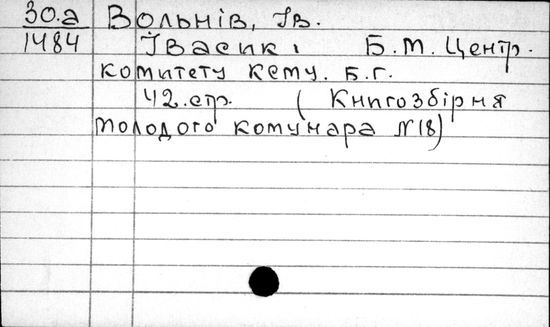 30.а Вольнів, Ів.
1484 Івасик. Б.М. Центр.
комитету кему. Б.Г.
42.стр. (Книгозбірня
молодого комунара №18)